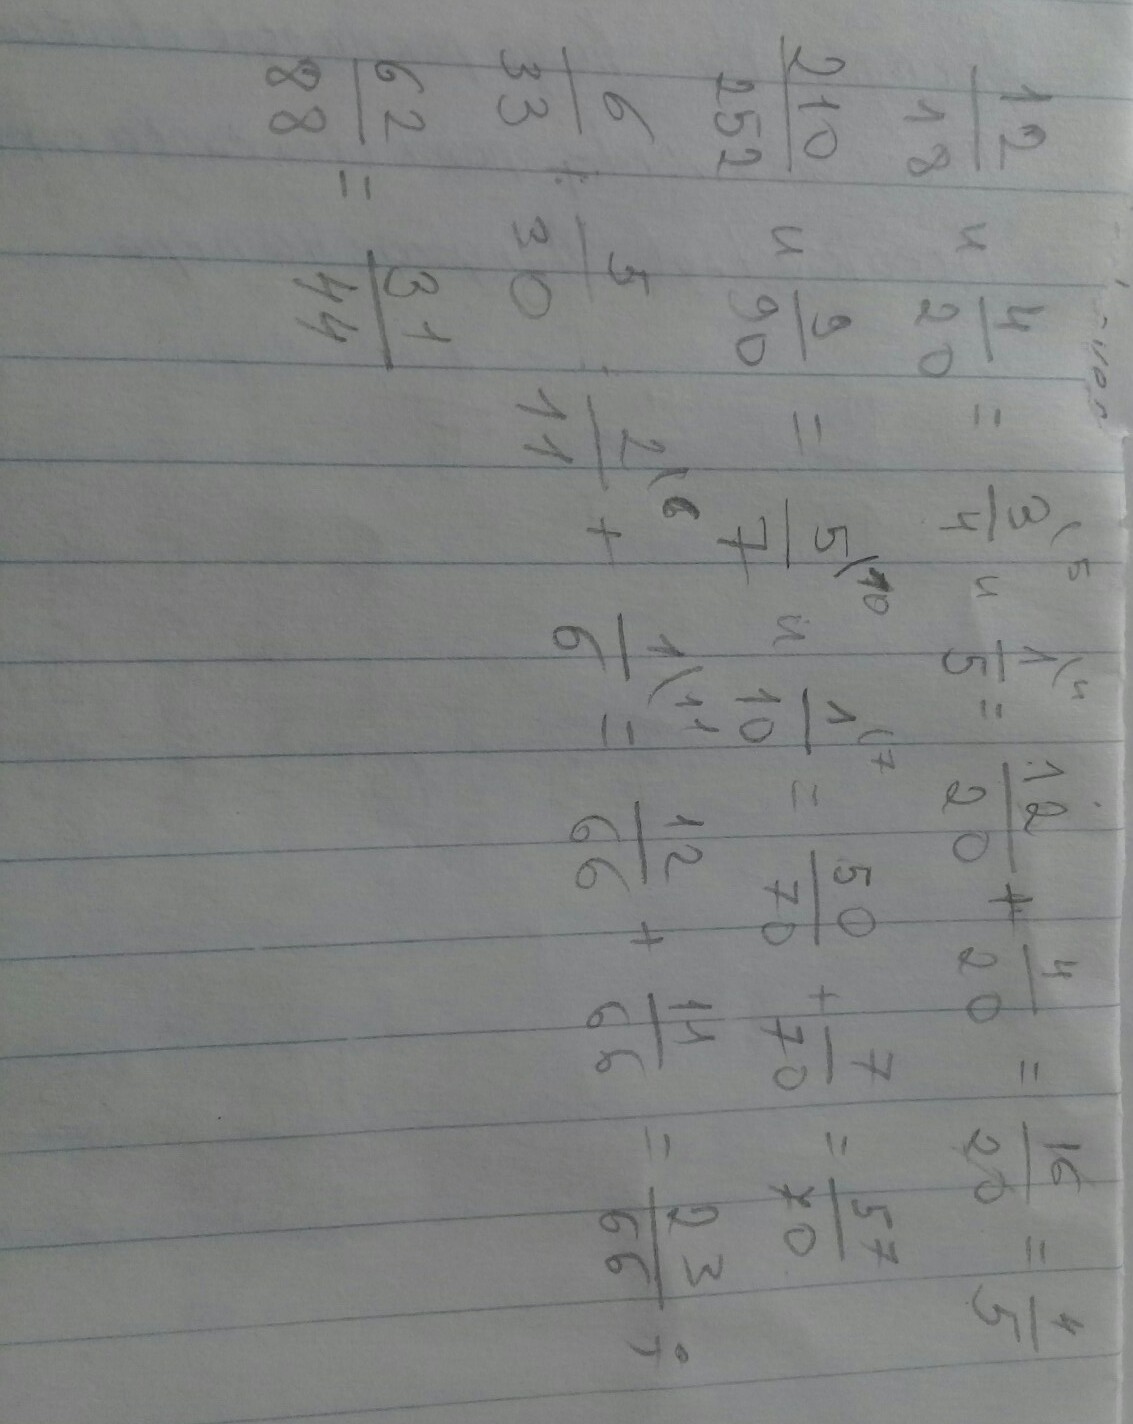 12/18 и 4/20 = 3/4 (5 и 1/5 (4 = 12/20 + 4/20 = 16/20 = 4/5
210/252 и 9/90 = 5/7 (10 и 1/10 (7 = 50/70 + 7/70 = 57/70
6/33 + 5/30 = 2/11 (6 + 1/6 (11 = 12/66 + 11/66 = 23/66
62/88 = 31/44